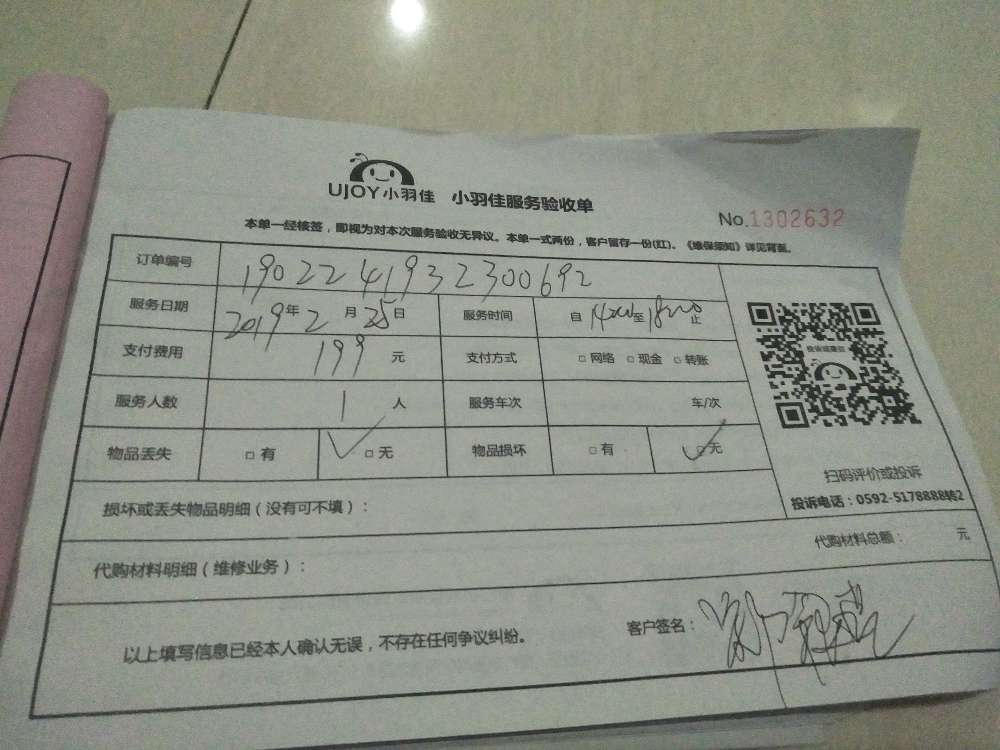 UJOY小羽佳 小羽佳服务验收单
No.1302632
本单一经核签，即视为对本次服务验收无异议。本单一式两份，客户留存一份(红)。《维保须知》详见背面。
订单编号 1902241932300692
服务日期 2019年2月25日 服务时间 自 至 止
支付费用 199元 支付方式 □网络 □现金 □转账
服务人数 1人 服务车次 车/次
物品丢失 □有 ✓□无 物品损坏 □有 ✓□无
扫码评价或投诉
投诉电话：0592-5178888转2
损坏或丢失物品明细（没有可不填）：
代购材料明细（维修业务）： 代购材料总额： 元
以上填写信息已经本人确认无误，不存在任何争议纠纷。 客户签名：